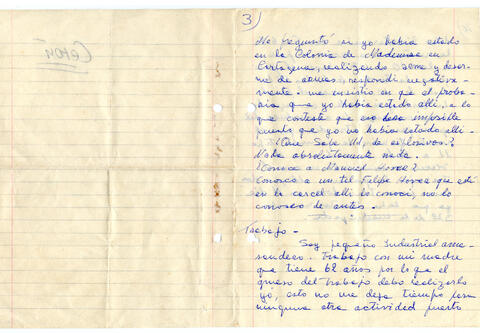 3
Me preguntó si yo había estado
en la Colonia de
Cartagena, realizando arme y desar-
me de armas, respondí negativa-
mente. me insistio en que el proba-
ria que yo había estado allí, a lo
que contesté que eso era imposible
puesto que yo no había estado allí.
¿Que Sabe Ud, de explosivos?
Nada absolutamente nada.
¿Conoce a Manuel
Conosco a un tal Felipe que está
en la carcel alli lo conoci, no lo
conosco de antes.
Trabajo -
Soy pequeño industrial
Trabajo con mi madre
que tiene 62 años por lo que el
grueso del trabajo debo realizarlo
yó, esto no me deja tiempo para
ninguna otra actividad puesto